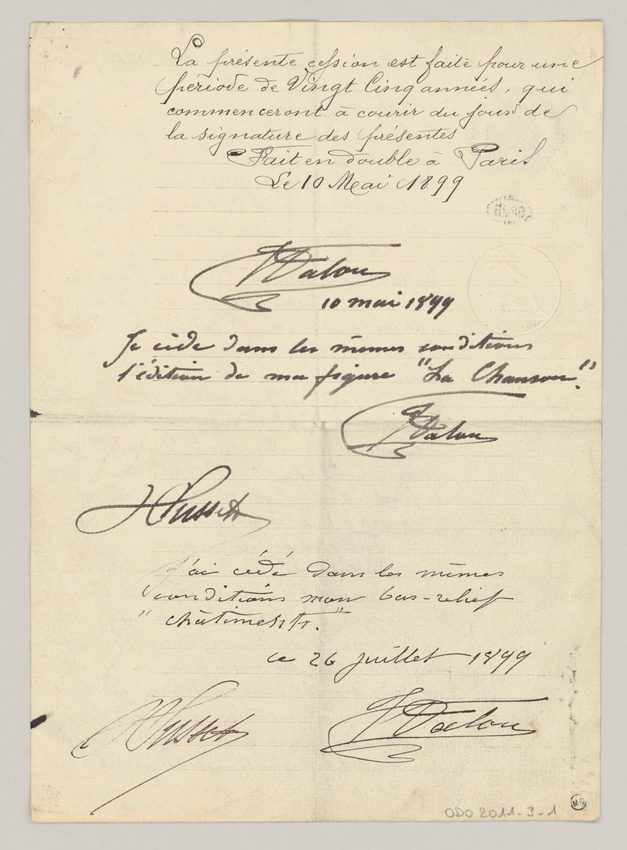 La présente cession est faite pour une
période de Vingt Cinq années, qui
commenceront à courir du jour de
la signature des présentes
Fait en double à Paris
Le 10 Mai 1899
J Dalou
10 mai 1899
Je cède dans les mêmes conditions
l'édition de ma figure "La Chanson."
J Dalou
H Susset
J'ai cédé dans les mêmes
conditions mon bas-relief
"châtiments."
ce 26 juillet 1899
J Dalou
ODO 2011-3-1